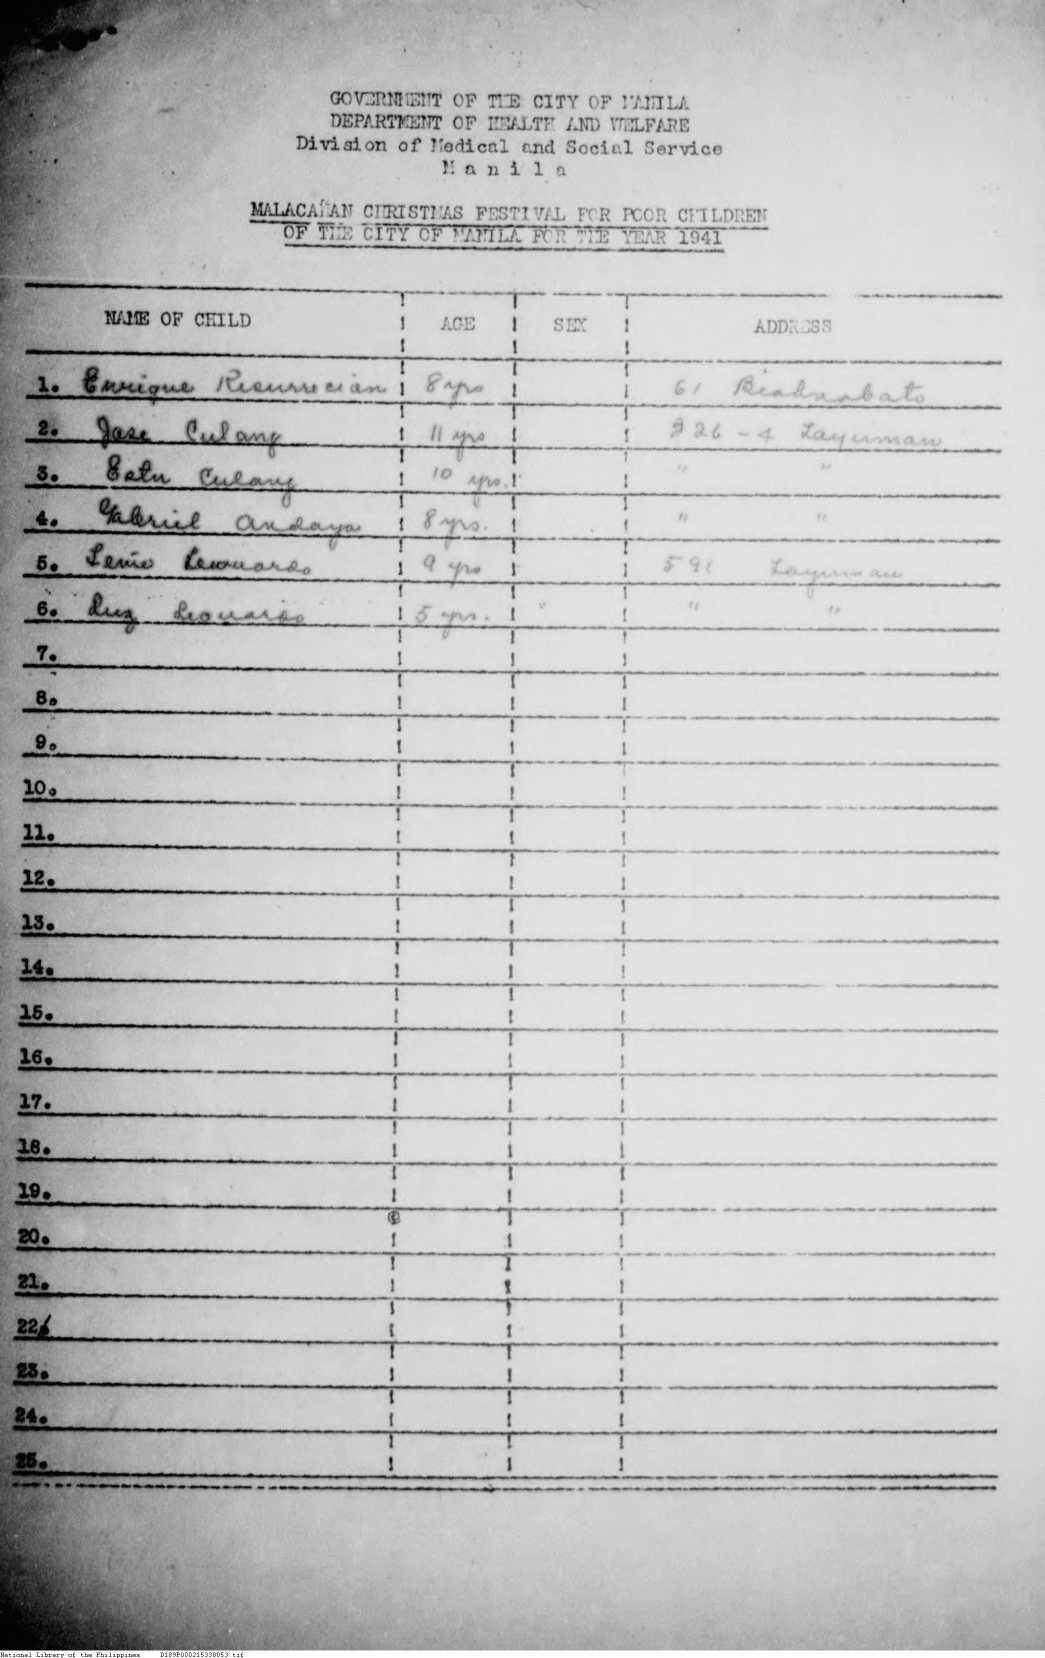 GOVERNMENT OF THE CITY OF MANILA
DEPARTMENT OF HEALTH AND WELFARE
Division of Medical and Social Service
M a n i l a
MALACAÑAN CHRISTMAS FESTIVAL FOR POOR CHILDREN
OF THE CITY OF MANILA FOR THE YEAR 1941
NAME OF CHILD AGE SEX ADDRESS
1. Enrique Resurrecian 8 yrs 61 Biaknabato
2. Jose Culang 11 yrs 326 - 4 Layunman
3. Culang 10 yrs. " "
4. Gabriel Andaya 8 yrs. " "
5. Leonardo 9 yrs 591 Layunman
6. Luz Leonardo 5 yrs. " "
7.
8.
9.
10.
11.
12.
13.
14.
15.
16.
17.
18.
19.
20.
21.
22.
23.
24.
25.
National Library of the Philippines D189P000215338053.tif